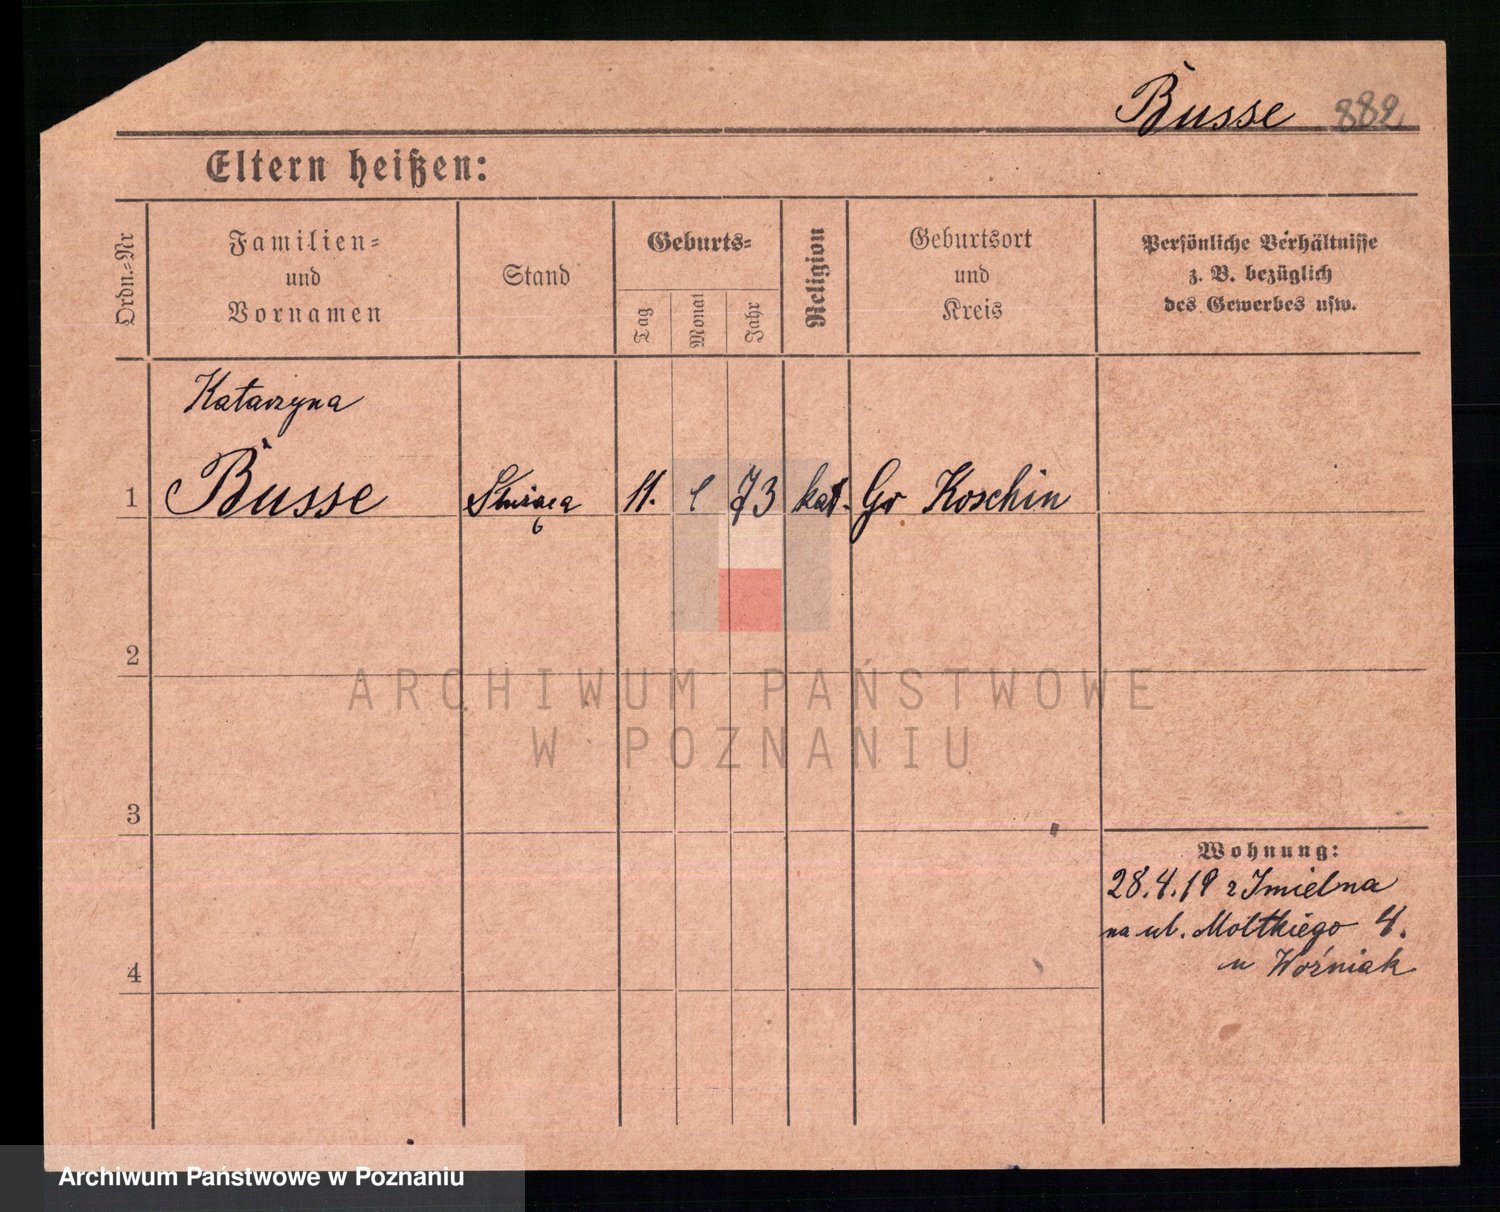 Busse 882
Eltern heißen:
Ordn.=Nr
Familien=
und
Vornamen
Stand
Geburts=
Tag
Monat
Jahr
Religion
Geburtsort
und
Kreis
Persönliche Verhältnisse
z. B. bezüglich
des Gewerbes usw.
Katarzyna
1 Busse Służąca 11. 73 kat. Gr Koschin
2
3
4
Wohnung:
28.4.19 z Imielna
na ul. Moltkiego 4.
u Woźniak
ARCHIWUM PAŃSTWOWE
W POZNANIU
Archiwum Państwowe w Poznaniu